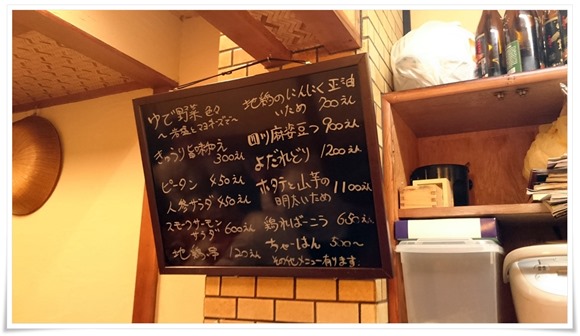 ゆで野菜 色々
〜岩塩とマヨネーズで〜
きゅうり旨味和え
300えん
ピータン 450えん
人参サラダ 450えん
スモークサーモン
サラダ 600えん
地鶏串 120えん
地鶏のにんにく正油
いため 700えん
四川麻婆豆フ 900えん
よだれどり 1200えん
ホタテと山芋の
明太いため 1100えん
鶏ればーこう 650えん
ちゃーはん 500〜
その他メニュー有ります。